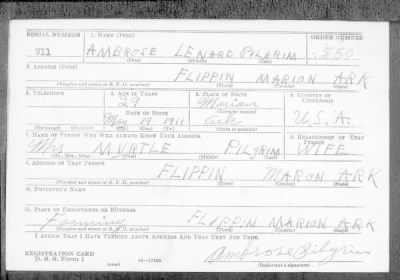 SERIAL NUMBER 1. NAME (Print) ORDER NUMBER
911 AMBROSE LENARD PILGRIM 850
(First) (Middle) (Last)
2. ADDRESS (Print)
FLIPPIN MARION ARK
(Number and street or R. F. D. number) (Town) (County) (State)
3. TELEPHONE 4. AGE IN YEARS 5. PLACE OF BIRTH 6. COUNTRY OF CITIZENSHIP
29 Marion
DATE OF BIRTH (Town or county)
May 18 1911 Ark U.S.A.
(Exchange) (Number) (Mo.) (Day) (Yr.) (State or country)
7. NAME OF PERSON WHO WILL ALWAYS KNOW YOUR ADDRESS 8. RELATIONSHIP OF THAT PERSON
Mrs MYRTLE PILGRIM WIFE
(Mr., Mrs., Miss) (First) (Middle) (Last)
9. ADDRESS OF THAT PERSON
FLIPPIN MARON ARK
(Number and street or R. F. D. number) (Town) (County) (State)
10. EMPLOYER'S NAME
11. PLACE OF EMPLOYMENT OR BUSINESS
Farming FLIPPIN MARION ARK
(Number and street or R. F. D. number) (Town) (County) (State)
I AFFIRM THAT I HAVE VERIFIED ABOVE ANSWERS AND THAT THEY ARE TRUE.
REGISTRATION CARD
D. S. S. Form 1 (over) Ambrose Pilgrim
(Registrant's signature)